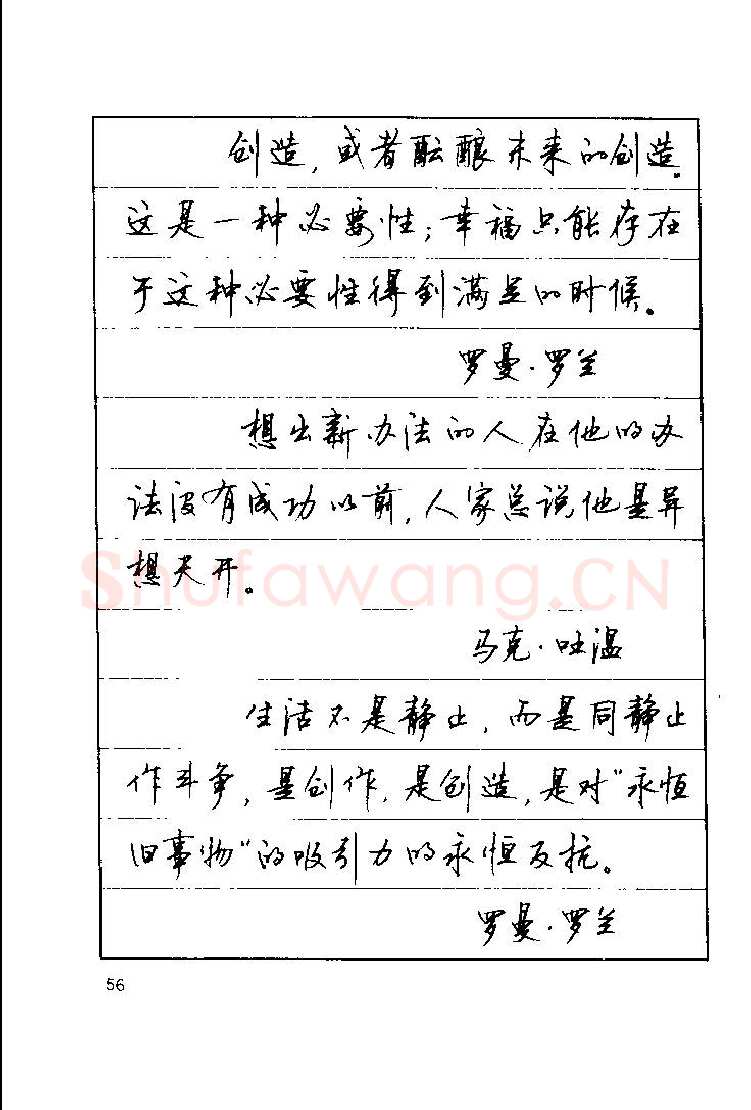 创造，或者酝酿未来的创造。
这是一种必要性；幸福只能存在
于这种必要性得到满足的时候。
罗曼·罗兰
想出新办法的人在他的办
法没有成功以前，人家总说他是异
想天开。
Shufawang.CN
马克·吐温
生活不是静止，而是同静止
作斗争，是创作，是创造，是对“永恒
旧事物”的吸引力的永恒反抗。
罗曼·罗兰
56